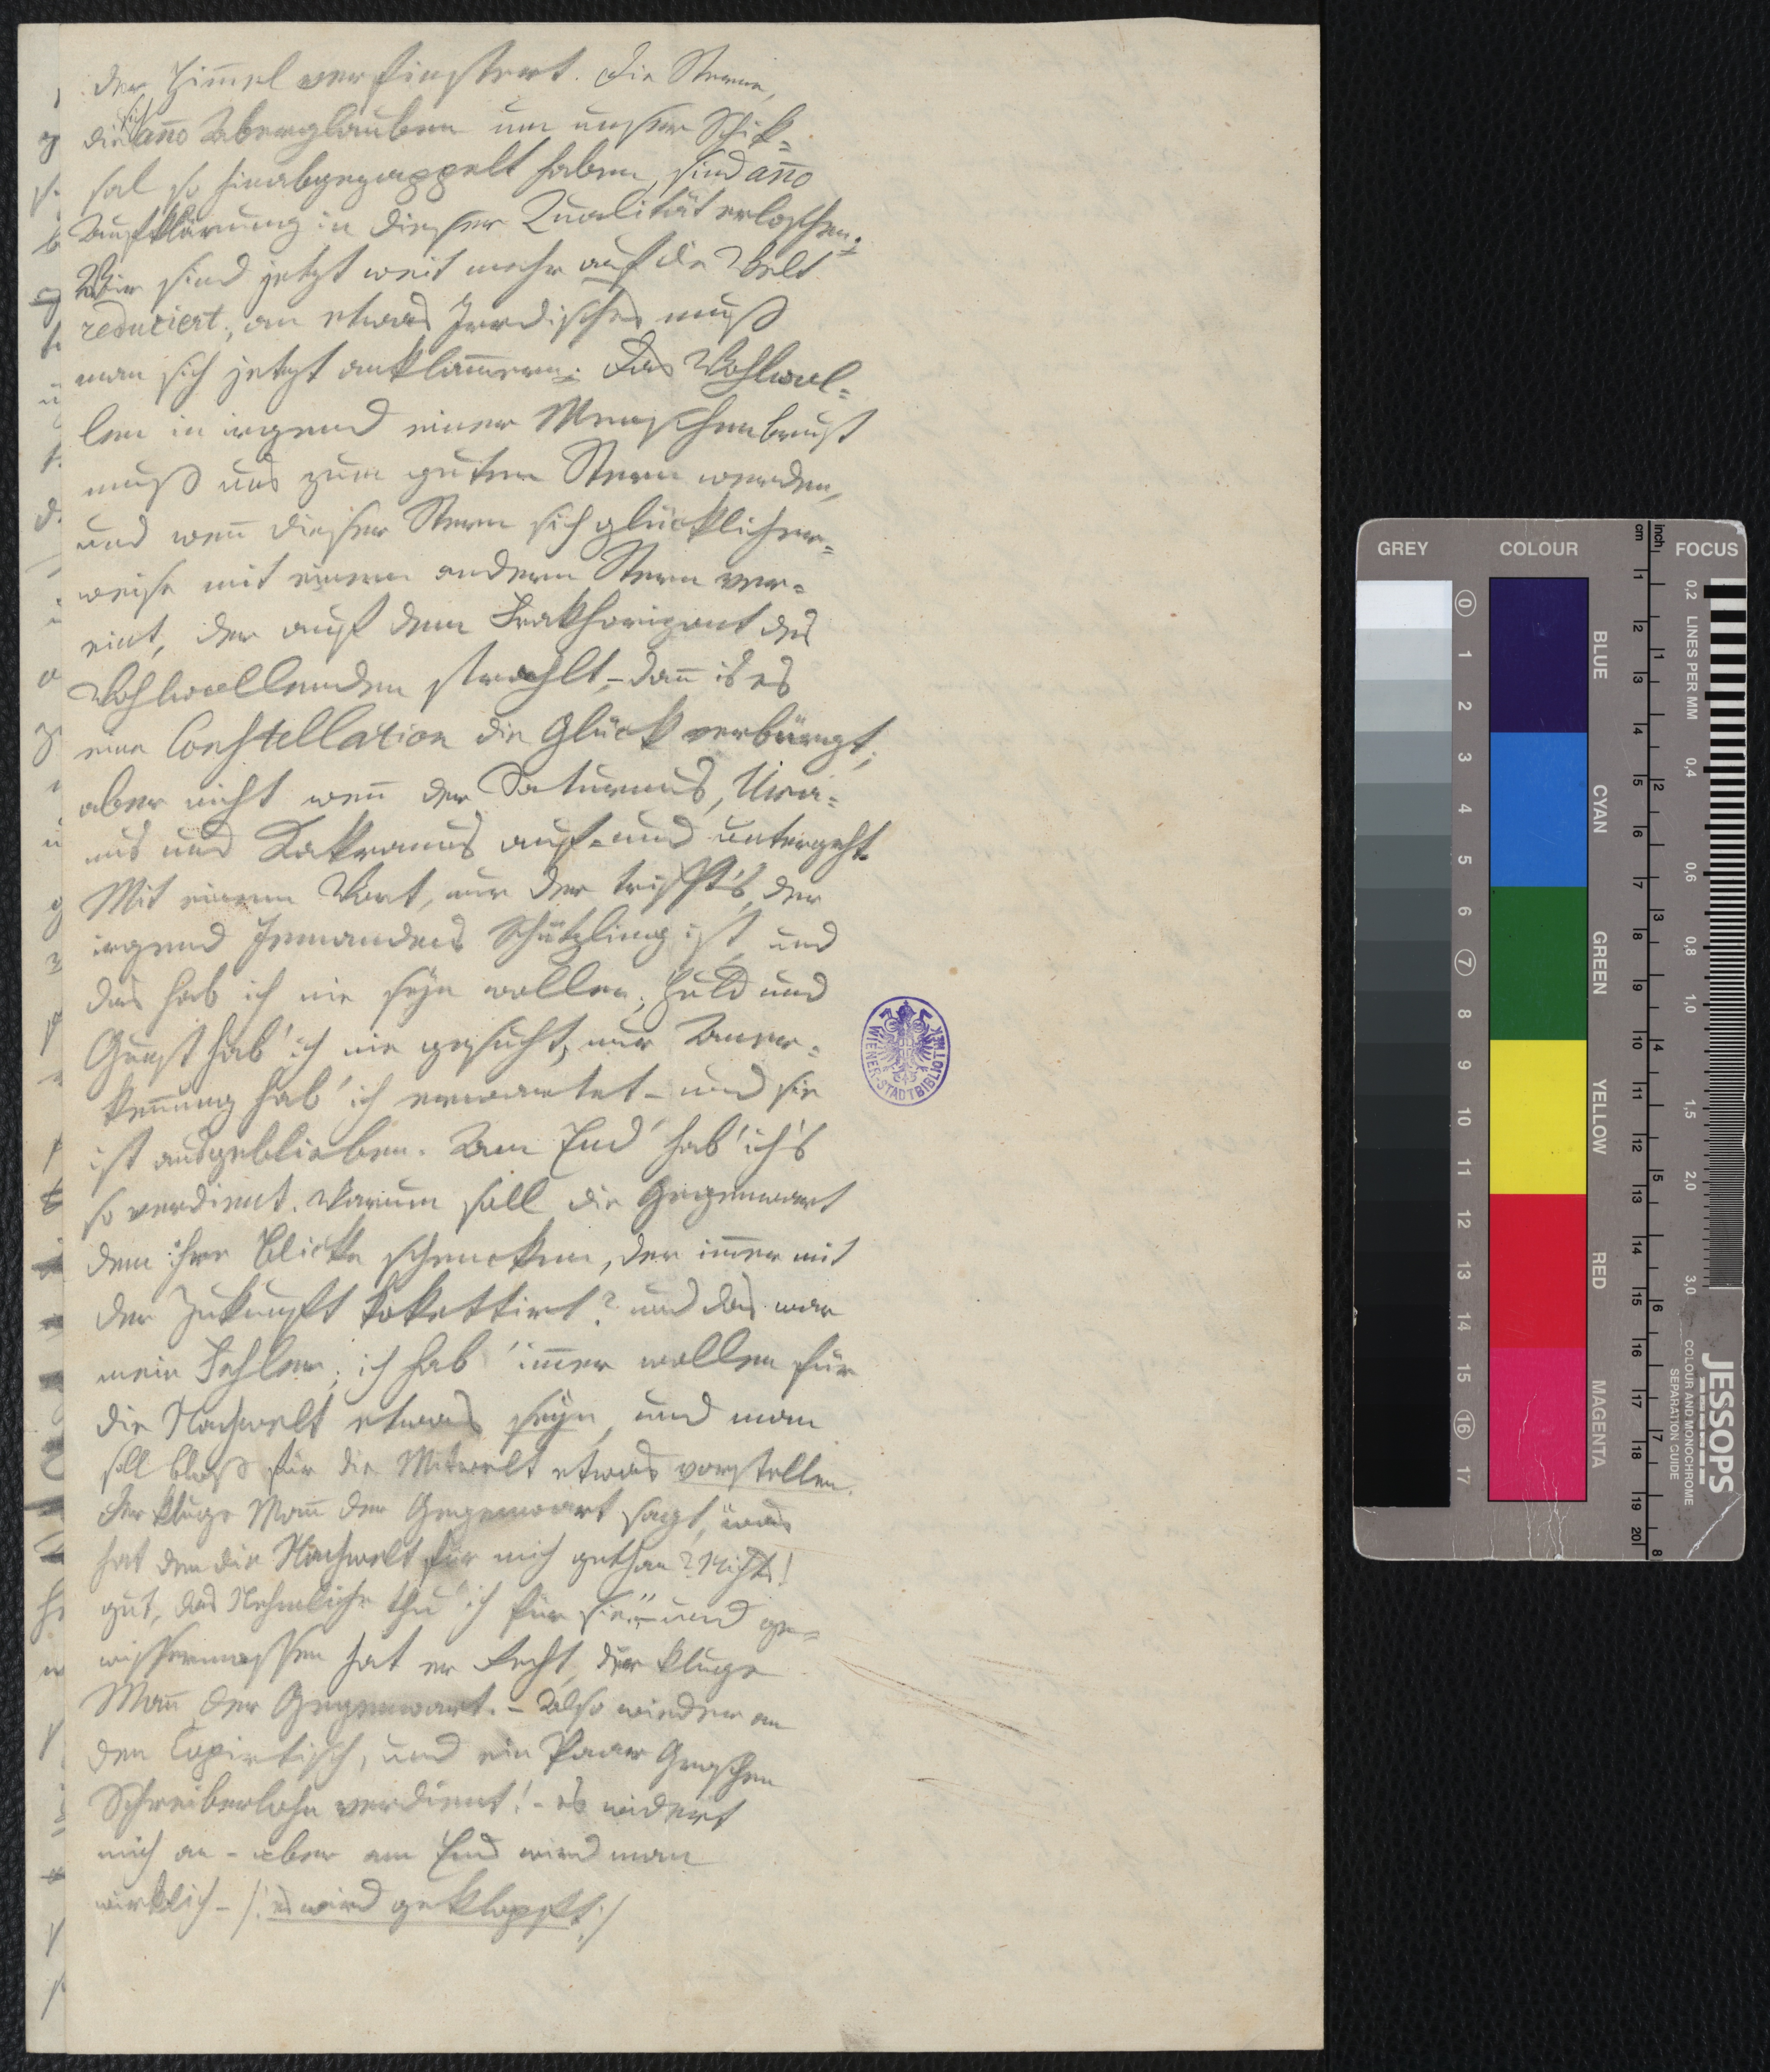 der Him̄el verfinstert. Die Sterne,
die sich anno Aberglauben um unser Schik=
sal so hinabgezappelt haben, sind anno
Aufklärung in dieser Qualität erloschen;
Wir sind jetzt weit mehr auf die Welt
reduciert, an etwas Irrdisches muß
man sich jetzt anklam̄ern; Das Wohlwol=
len in irgend einer Menschenbrust
muß uns zum guten Stern werden,
und wen̄ dieser Stern sich glücklicher=
weise mit einem andern Stern ver=
eint, der auf dem Frakhorizont des
Wohlwollenden strahlt, – dan̄ is es
eine Constellation die Glück verbürgt;
aber nicht wen̄ der Saturnus, Ura=
nus und auf= und untergeht.
Mit einem Wort, nur der trifft's, der
irgend Jemandens Schützling ist, und
das hab ich nie seyn wollen; Huld und
Gunst hab' ich nie gesucht, nur Aner=
ken̄ung hab' ich erwartet – und sie
ist ausgeblieben. Am End' hab' ich's
so verdient. Warum soll die Gegenwart
dem ihre Blicke schencken, der im̄er mit
der Zukunft kokettirt? und das war
mein Fehler; ich hab' im̄er wollen für
die Nachwelt etwas seyn, und man
soll bloß für die Mitwelt etwas vorstellen.
Der kluge Man̄ der Gegenwart sagt, "was
hat den die Nachwelt für mich gethan? Nichts!
gut, das Nehmliche thu' ich für sie" – und ge=
wissermassen hat er Recht, der kluge
Man̄ der Gegenwart. – Also wieder an
den Copirtisch, und ein Paar Groschen
Schreiberlohn verdient! – es widert
mich an – aber am End wird man
wirklich – /: es wird geklopft :/
WIENER-STADTBIBLIOTHEK
GREY COLOUR FOCUS
cm inch
0 1 2 3 4 5 6 7 8 9 10 11 12 13 14 15 16 17
BLUE
CYAN
GREEN
YELLOW
RED
MAGENTA
1 2 3 4 5 6 7 8 9 10 11 12 13 14 15 16 17 18 19 20
1 2 3 4 5 6 7 8
0,2 LINES PER MM 0,4 0,6 0,8 1,0 1,5 2,0 3,0
JESSOPS
COLOUR AND MONOCHROME
SEPARATION GUIDE